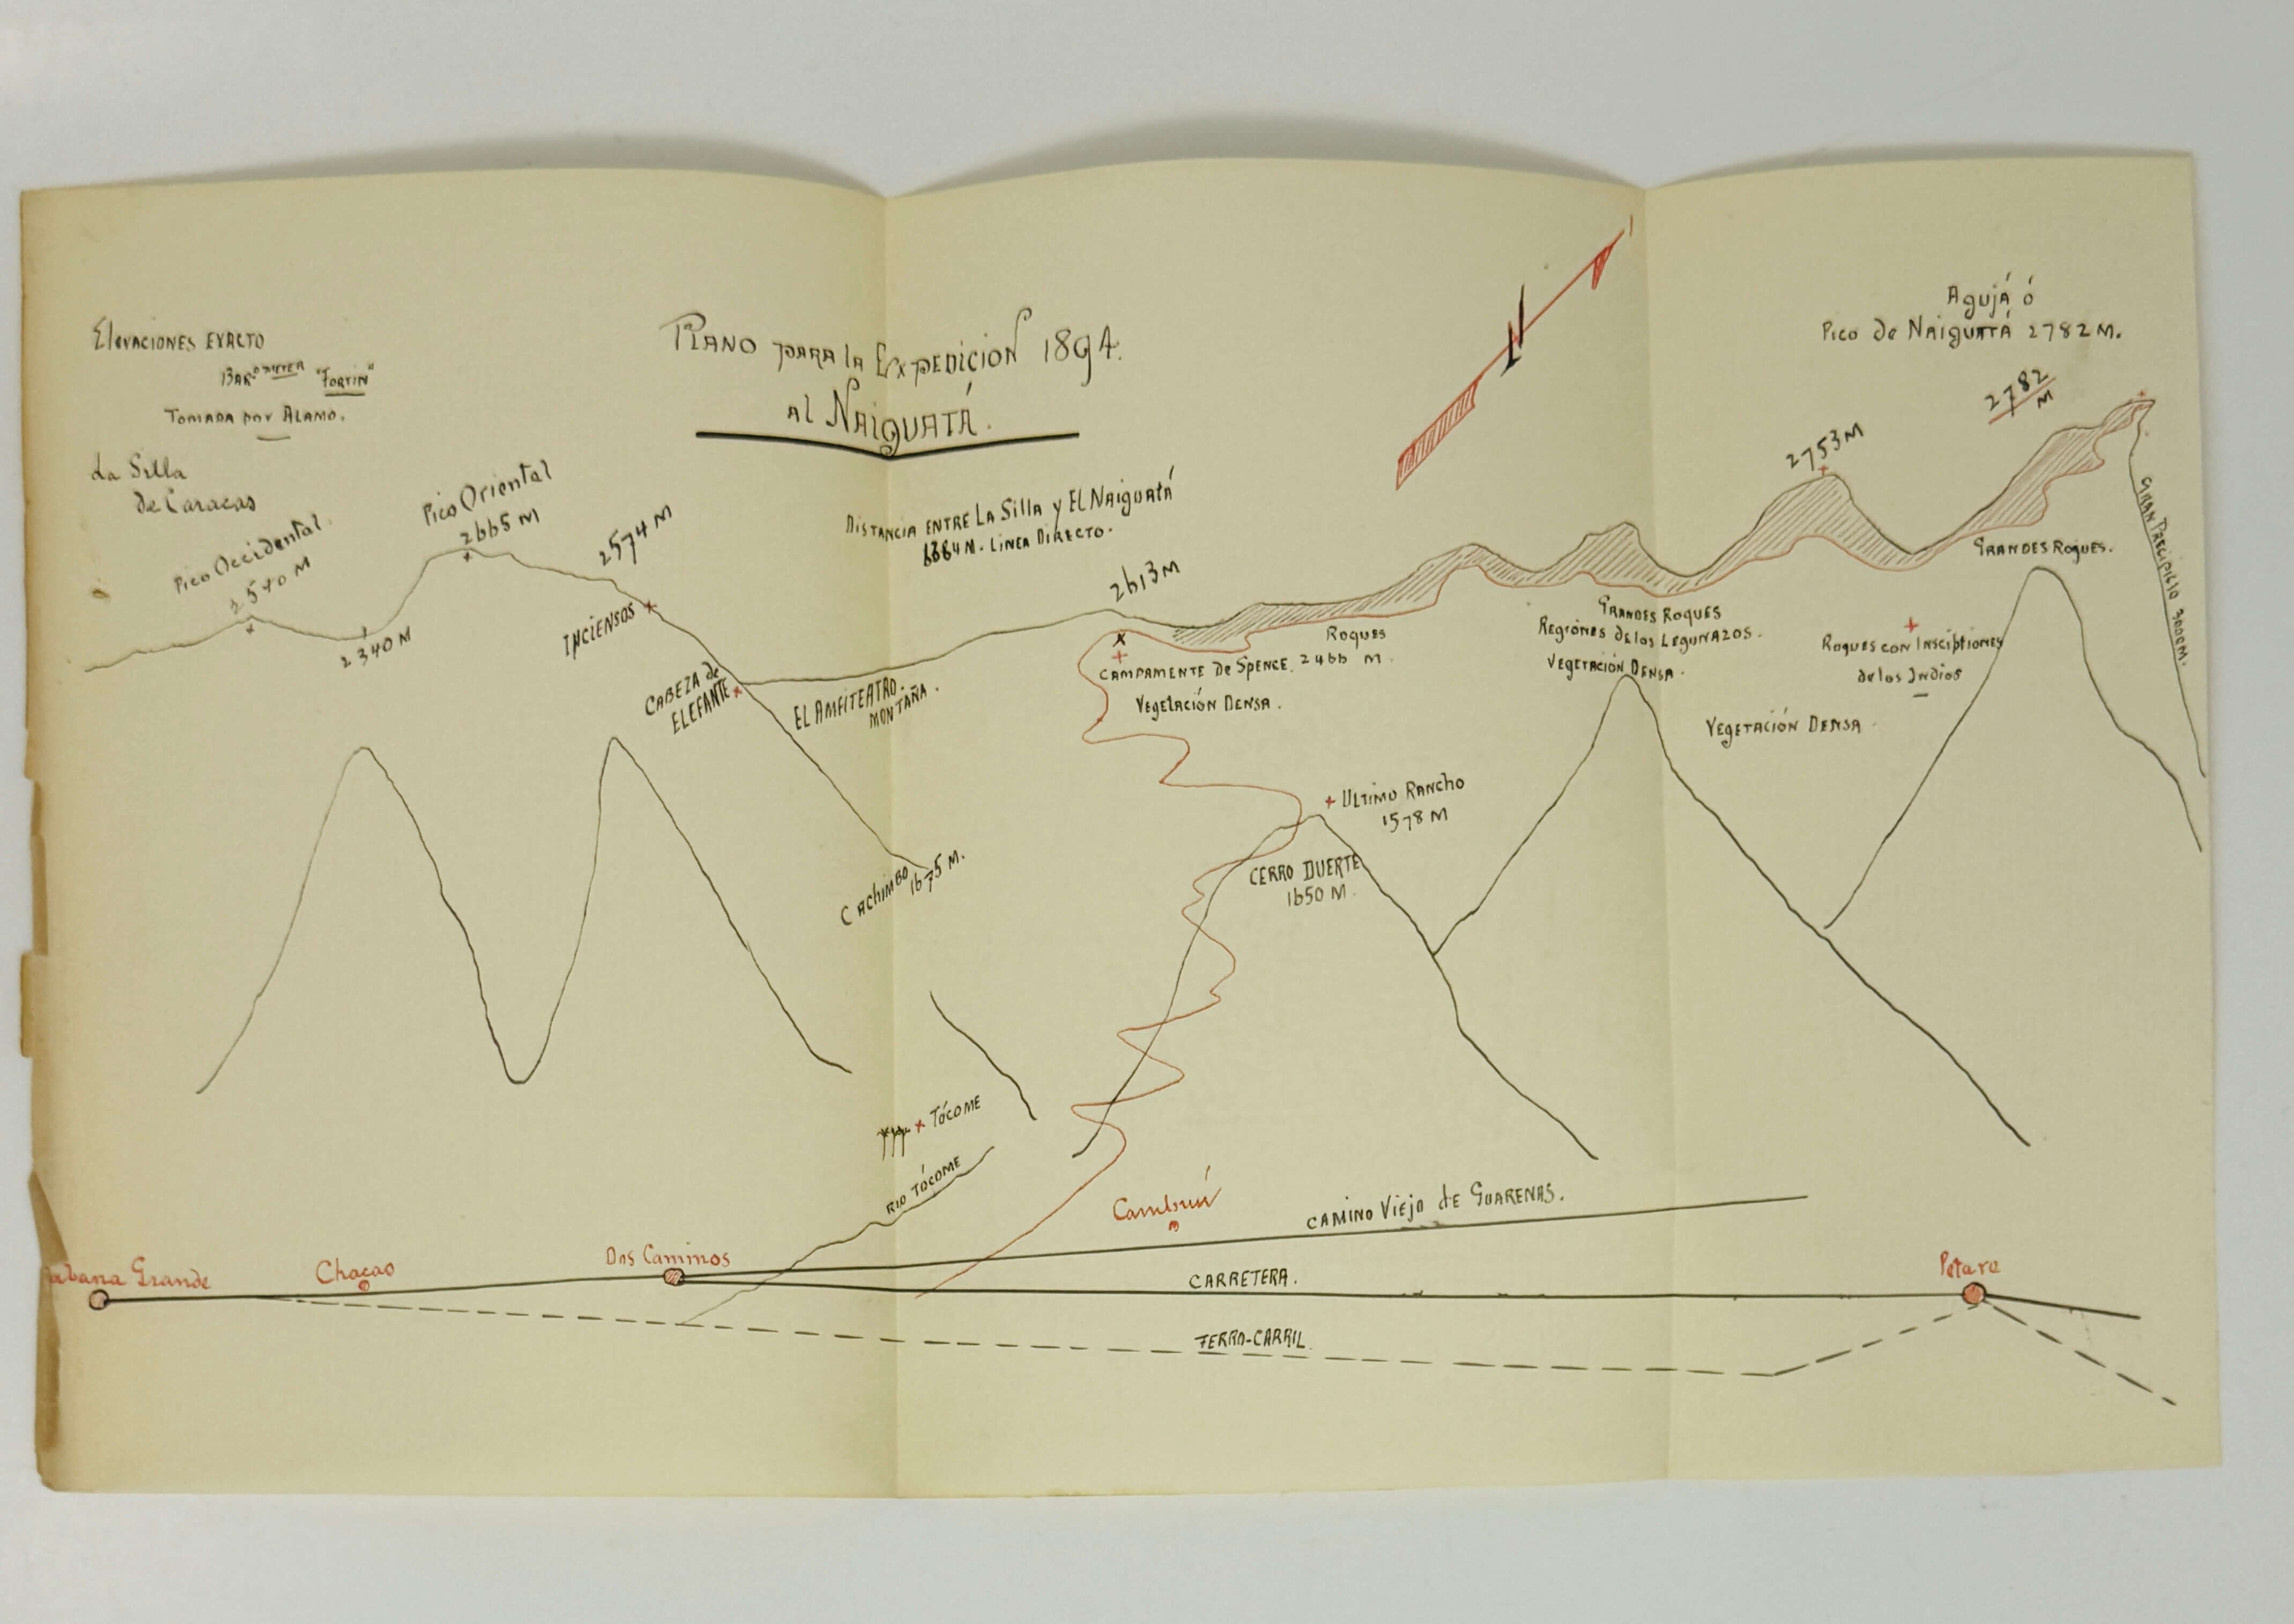 Elevaciones Exacto
Barometer "Fortin"
Tomada por Alamo.
Plano para la Expedicion 1894.
al Naiguatá.
Agujá ó
Pico de Naiguatá 2782 M.
2782
M
2753 M
La Silla
de Caracas
Pico Occidental
2540 M
2340 M
Pico Oriental
2665 M
2574 M
Distancia entre La Silla y El Naiguatá
M. Linea Directo.
2613 M
Inciensos
Cabeza de
Elefante
El Amfiteatro.
Montaña.
Campamente de Spence. 2466 M.
Vegetación Densa.
Roques
Grandes Roques
Regiones de los Legunazos.
Vegetación Densa.
Grandes Roques.
Roques con Insciptiones
de los Indios
Vegetación Densa
Gran Precipicio 3000 M.
Ultimo Rancho
1578 M
Cerro Duerte
1650 M.
Cachimbo
1675 M.
Tócome
Rio Tócome
Camburí
Camino Viejo de Guarenas.
abana Grande
Chacao
Dos Caminos
Carretera.
Petare
Ferro-Carril.